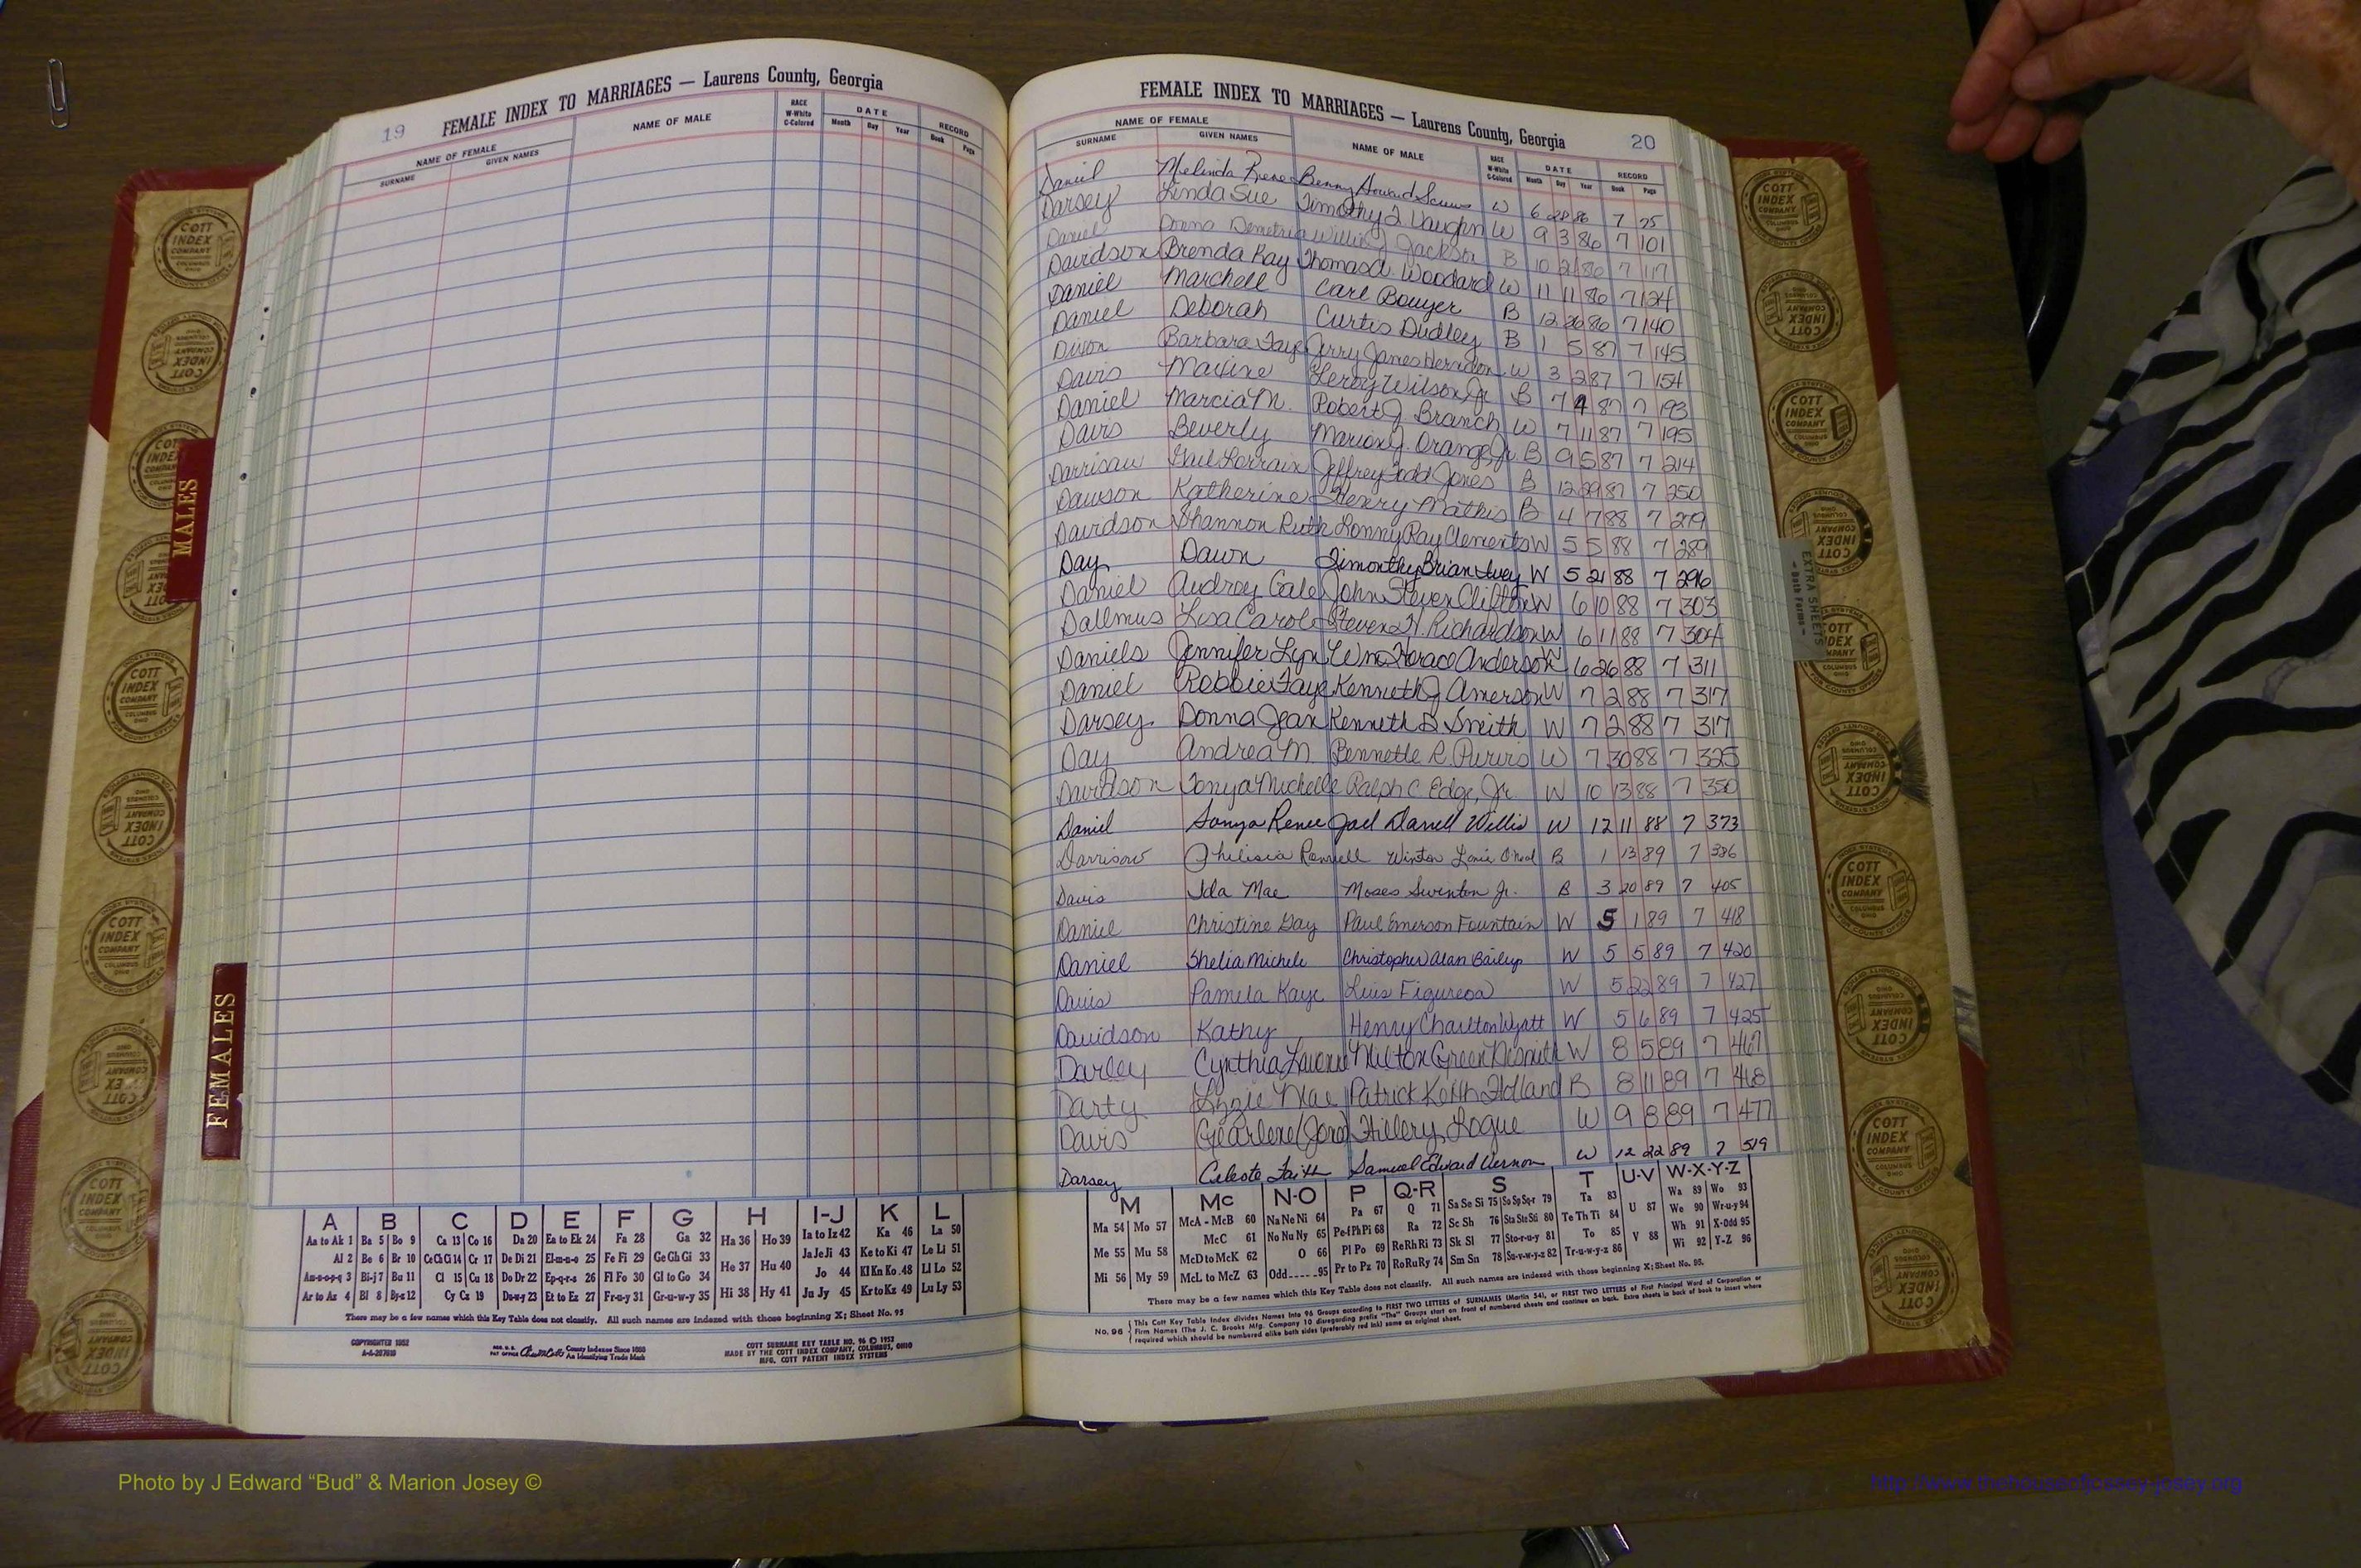 19 FEMALE INDEX TO MARRIAGES — Laurens County, Georgia
NAME OF FEMALE
SURNAME GIVEN NAMES
NAME OF MALE
RACE W-White C-Colored
DATE Month Day Year
RECORD Book Page
FEMALE INDEX TO MARRIAGES — Laurens County, Georgia 20
NAME OF FEMALE
SURNAME GIVEN NAMES
NAME OF MALE
RACE W-White C-Colored
DATE Month Day Year
RECORD Book Page
Daniel Melinda Benny Howard W 6 28 86 7 75
Darsey Linda Sue Timothy L Vaughn W 9 3 86 7 101
Daniel Donna Demetria Willie J Jackson B 10 2 86 7 117
Davidson Brenda Kay Thomas A. Woodard W 11 11 86 7 124
Daniel Marchell Carl Bowyer B 12 26 86 7 140
Daniel Deborah Curtis Dudley B 1 5 87 7 145
Dixon Barbara Faye Jerry James Herndon W 3 2 87 7 154
Davis Maxine Leroy Wilson, Jr. B 7 4 87 7 193
Daniel Marcia M. Robert J. Branch W 7 11 87 7 195
Davis Beverly Marion J. Orange, Jr. B 9 5 87 7 214
Darrisaw Gail Lorrain Jeffrey Todd Jones B 12 29 87 7 250
Dawson Katherine Henry Mathis B 4 7 88 7 279
Davidson Shannon Ruth Ronny Ray Clements W 5 5 88 7 289
Day Dawn Timothy Brian Ivey W 5 21 88 7 296
Daniel Audrey Gale John Steven Clifton W 6 10 88 7 303
Dallmus Lisa Carol Steven H. Richardson W 6 11 88 7 304
Daniels Jennifer Lyn Wm. Horace Anderson W 6 26 88 7 311
Daniel Robbie Faye Kenneth J Amerson W 7 2 88 7 317
Darsey Donna Jean Kenneth D Smith W 7 2 88 7 317
Day Andrea M. Bennette R. Purvis W 7 30 88 7 325
Davidson Tonya Michelle Ralph C. Edge, Jr. W 10 13 88 7 350
Daniel Sonya Renee Joel Darrell Willis W 12 11 88 7 373
Darrisaw Philisia Winton O'Neal B 1 13 89 7 386
Davis Ida Mae Moses Swinton Jr. B 3 20 89 7 405
Daniel Christine Gay Paul Emerson Fountain W 5 1 89 7 418
Daniel Shelia Michele Christopher Alan Bailey W 5 5 89 7 420
Davis Pamela Kaye Luis Figueroa W 5 22 89 7 427
Davidson Kathy Henry Charlton Wyatt W 5 6 89 7 425
Darley Cynthia Milton Green Nesmith W 8 5 89 7 467
Darty Lizzie Mae Patrick Keith Holland B 8 11 89 7 468
Davis Gearlene (Jones) Hillery Logue W 9 8 89 7 477
Darsey Celeste Faith Samuel Edward Vernon W 12 22 89 7 519
MALES
FEMALES
EXTRA SHEETS
COTT INDEX COMPANY COLUMBUS OHIO
A B C D E F G H I-J K L
Aa to Ak 1 Ba 5 Bo 9 Ca 13 Co 16 Da 20 Ea to Ek 24 Fa 28 Ga 32 Ha 36 Ho 39 Ia to Iz 42 Ka 46 La 50
Al 2 Be 6 Br 10 Ce Ch Ci 14 Cr 17 De Di 21 El-m-n-o 25 Fe Fi 29 Ge Gh Gi 33 He 37 Hu 40 Ja Je Ji 43 Ke to Ki 47 Le Li 51
Am-n-o-p-q 3 Bi-j 7 Bu 11 Cl 15 Cu 18 Do Dr 22 Ep-q-r-s 26 Fl Fo 30 Gl to Go 34 Hi 38 Hy 41 Jo 44 Kl Kn Ko 48 Ll Lo 52
Ar to Az 4 Bl 8 By-z 12 Cy Cz 19 Du-w-y 23 Et to Ez 27 Fr-u-y 31 Gr-u-w-y 35 Ju Jy 45 Kr to Kz 49 Lu Ly 53
There may be a few names which this Key Table does not classify. All such names are indexed with those beginning X; Sheet No. 95
COPYRIGHTED 1952
COTT SURNAME KEY TABLE NO. 96 © 1952
MADE BY THE COTT INDEX COMPANY, COLUMBUS, OHIO
MFG. COTT PATENT INDEX SYSTEMS
County Indexes Since 1888
An Identifying Trade Mark
M Mc N-O P Q-R S T U-V W-X-Y-Z
Ma 54 Mo 57 McA - McB 60 Na Ne Ni 64 Pa 67 Q 71 Sa Se Si 75 So Sp Sq-r 79 Ta 83 U 87 Wa 89 Wo 93
Me 55 Mu 58 McC 61 No Nu Ny 65 Pe-f Ph Pi 68 Ra 72 Sc Sh 76 Sta Ste Sti 80 Te Th Ti 84 V 88 We 90 Wr-u-y 94
Mi 56 My 59 McD to McK 62 O 66 Pl Po 69 Re Rh Ri 73 Sk Sl 77 Sto-r-u-y 81 To 85 Wh 91 X-Odd 95
McL to McZ 63 Odd 95 Pr to Pz 70 Ro Ru Ry 74 Sm Sn 78 Su-v-w-y-z 82 Tr-u-w-y-z 86 Wi 92 Y-Z 96
There may be a few names which this Key Table does not classify. All such names are indexed with those beginning X; Sheet No. 95.
No. 96 This Cott Key Table Index divides Names into 96 Groups according to FIRST TWO LETTERS of SURNAMES (Martin 54), or FIRST TWO LETTERS of First Principal Word of Corporation or
Firm Names (The J. C. Brooks Mfg. Company 10 disregarding prefix "The" Groups start on front of numbered sheets and continue on back. Extra sheets in back of book to insert where
required which should be numbered alike both sides (preferably red ink) same as original sheet.
Photo by J Edward “Bud” & Marion Josey ©
http://www.thehouseofjossey-josey.org